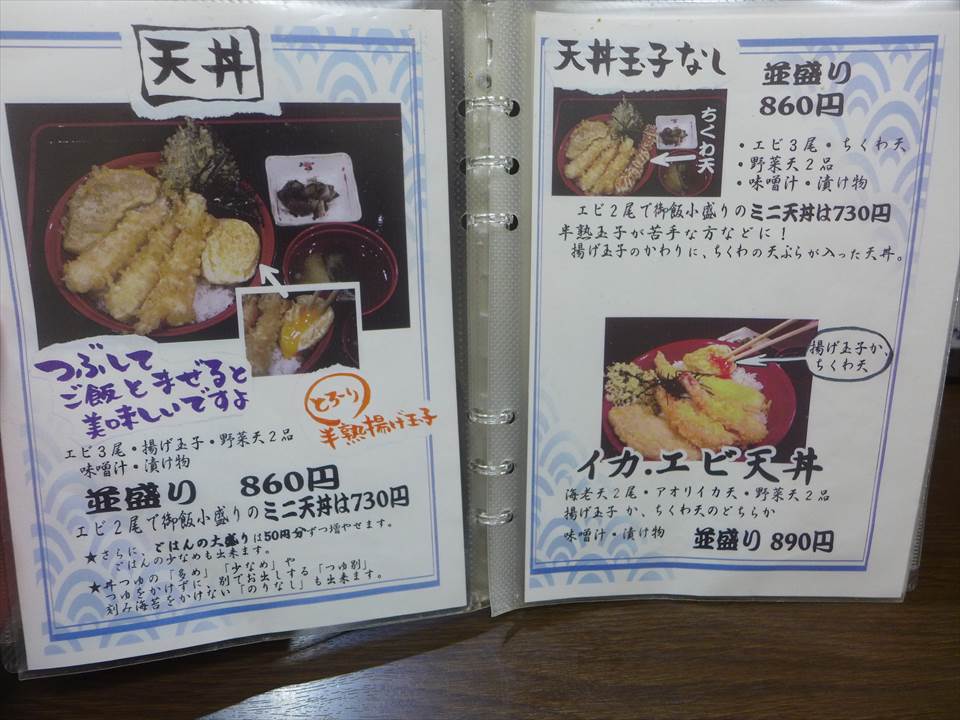 天丼
つぶして
ご飯とまぜると
美味しいですよ
とろ〜り
半熟揚げ玉子
エビ3尾・揚げ玉子・野菜天2品
味噌汁・漬け物
並盛り 860円
エビ2尾で御飯小盛りのミニ天丼は730円
★さらに、ごはんの大盛りは50円分ずつ増やせます。
ごはんの少なめも出来ます。
★丼つゆの「多め」「少なめ」や
つゆをかけずに、別でお出しする「つゆ別」
刻み海苔をかけない「のりなし」も出来ます。
天丼玉子なし
並盛り
860円
ちくわ天
・エビ3尾・ちくわ天
・野菜天2品
・味噌汁・漬け物
エビ2尾で御飯小盛りのミニ天丼は730円
半熟玉子が苦手な方などに！
揚げ玉子のかわりに、ちくわの天ぷらが入った天丼。
揚げ玉子か、
ちくわ天
イカ.エビ天丼
海老天2尾・アオリイカ天・野菜天2品
揚げ玉子か、ちくわ天のどちらか
味噌汁・漬け物 並盛り 890円